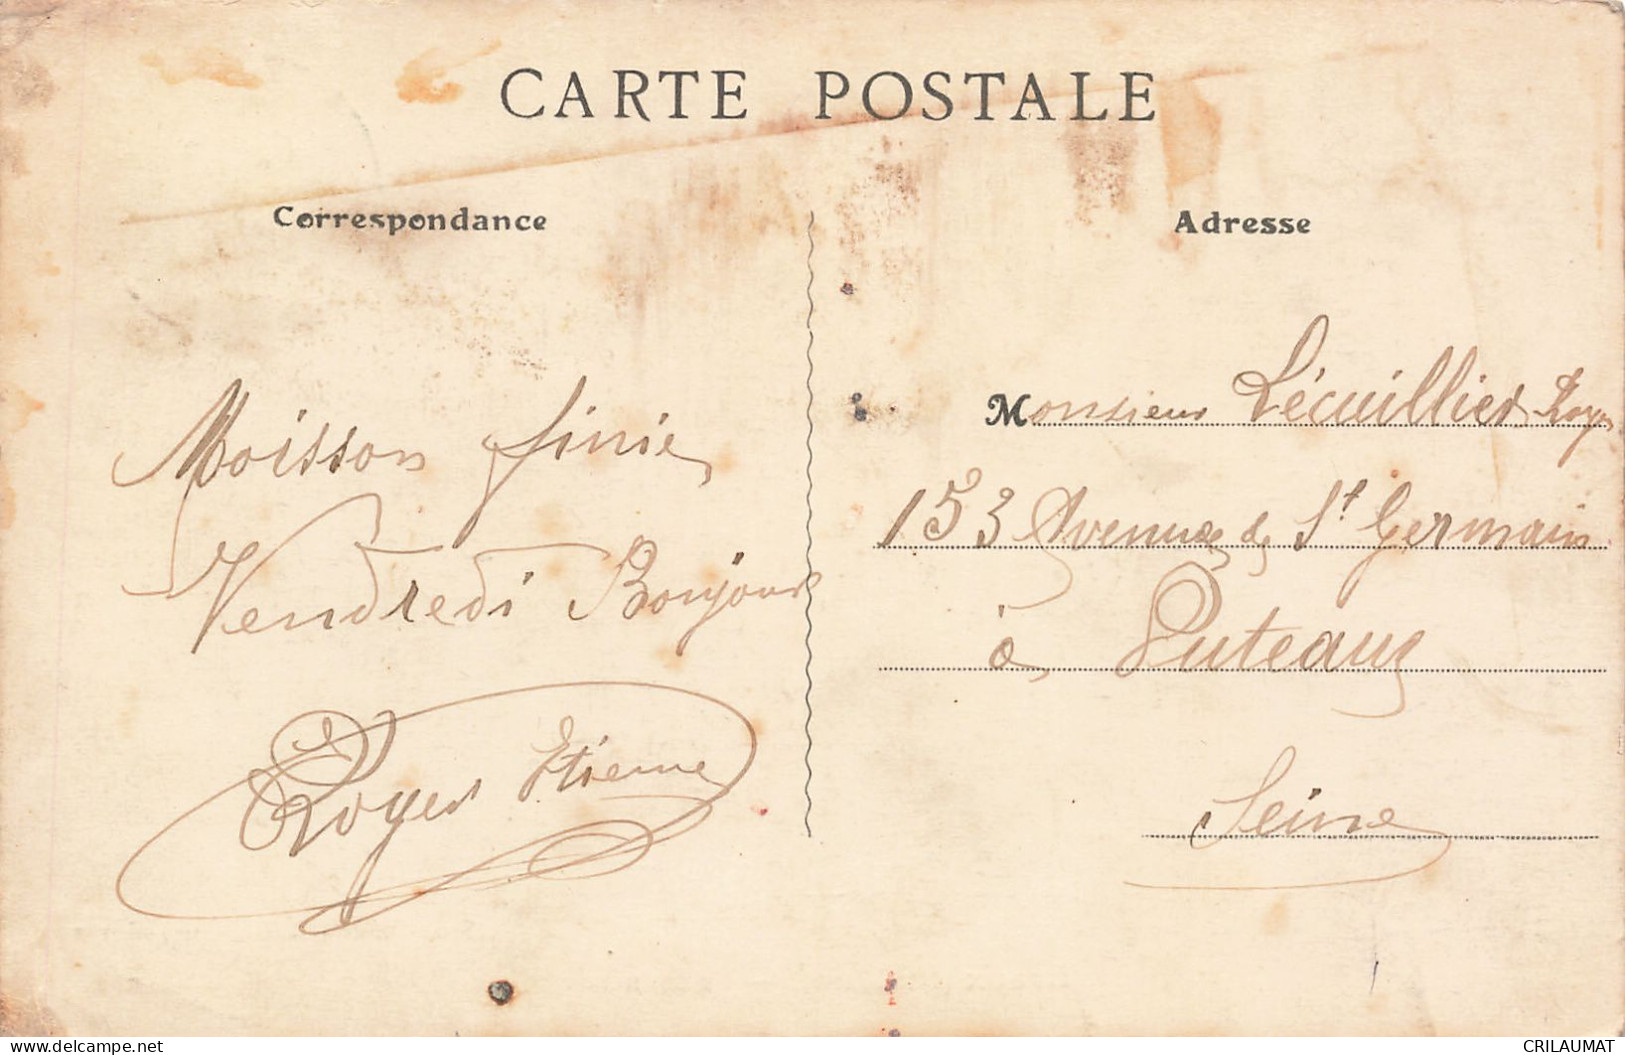 CARTE POSTALE
Correspondance
Adresse
Moisson finie
Vendredi Bonjour
Royer Etienne
Monsieur Lécuillier
153 Avenue de St Germain
à Puteaux
Seine
www.delcampe.net
CRILAUMAT